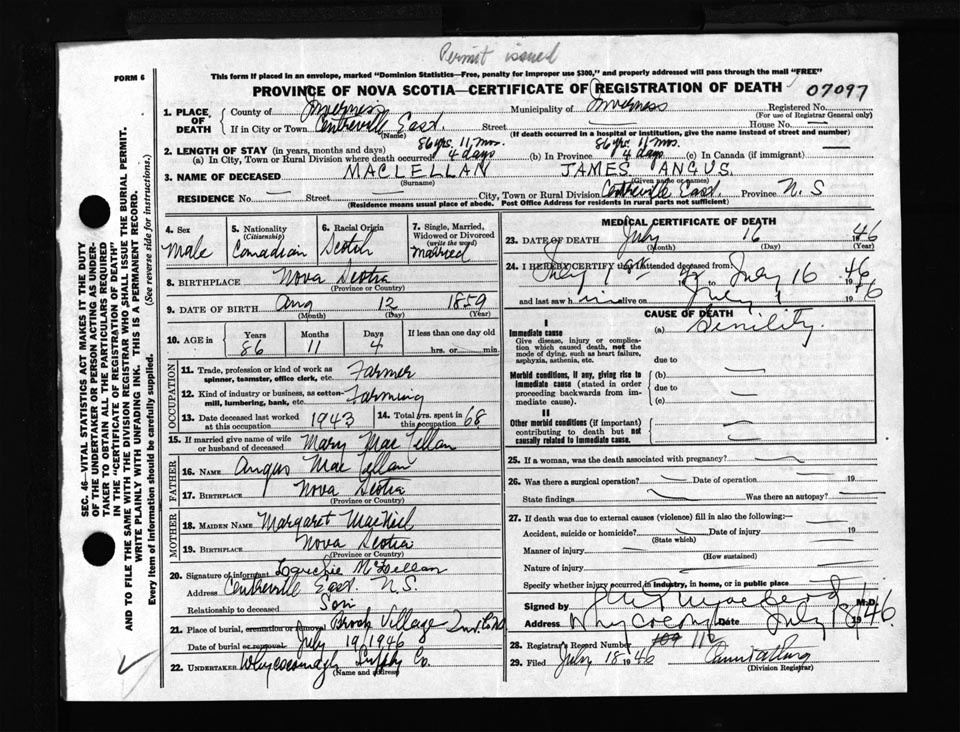 Permit issued
FORM 6
This form if placed in an envelope, marked "Dominion Statistics—Free, penalty for improper use $300," and properly addressed will pass through the mail "FREE"
PROVINCE OF NOVA SCOTIA—CERTIFICATE OF REGISTRATION OF DEATH
07097
1. PLACE OF DEATH
County of Inverness Municipality of Inverness Registered No.
(For use of Registrar General only)
If in City or Town Centreville East. Street — House No. —
(Name) (If death occurred in a hospital or institution, give the name instead of street and number)
2. LENGTH OF STAY (in years, months and days) 86 yrs. 11 mos. 86 yrs. 11 mos.
(a) In City, Town or Rural Division where death occurred 4 days (b) In Province 4 days (c) In Canada (if immigrant) —
3. NAME OF DECEASED MACLELLAN JAMES ANGUS.
(Surname) (Given name or names)
RESIDENCE No. — Street City, Town or Rural Division Centreville East. Province N. S
(Residence means usual place of abode. Post Office Address for residents in rural parts not sufficient)
4. Sex Male
5. Nationality (Citizenship) Canadian
6. Racial Origin Scotch
7. Single, Married, Widowed or Divorced (write the word) Married
8. BIRTHPLACE Nova Scotia
(Province or Country)
9. DATE OF BIRTH Aug 12 1859
(Month) (Day) (Year)
10. AGE in Years Months Days If less than one day old
86 11 4 hrs. or min.
OCCUPATION
11. Trade, profession or kind of work as spinner, teamster, office clerk, etc. Farmer
12. Kind of industry or business, as cotton-mill, lumbering, bank, etc. Farming
13. Date deceased last worked at this occupation 1943
14. Total yrs. spent in this occupation 68
15. If married give name of wife or husband of deceased Mary MacLellan
FATHER
16. NAME Angus MacLellan
17. BIRTHPLACE Nova Scotia
(Province or Country)
MOTHER
18. MAIDEN NAME Margaret MacNeil
19. BIRTHPLACE Nova Scotia
(Province or Country)
20. Signature of informant McLellan
Address Centreville East. N.S.
Relationship to deceased Son
21. Place of burial, cremation or removal Brook Village
Date of burial or removal July 19 1946
22. UNDERTAKER Whycocomagh Supply Co.
(Name and address)
MEDICAL CERTIFICATE OF DEATH
23. DATE OF DEATH July 16 1946
(Month) (Day) (Year)
24. I HEREBY CERTIFY that I attended deceased from
July 1 to July 16 1946
and last saw h im alive on July 1 1946
CAUSE OF DEATH
I
Immediate cause (a) Senility.
Give disease, injury or complication which caused death, not the mode of dying, such as heart failure, asphyxia, asthenia, etc.
due to
Morbid conditions, if any, giving rise to immediate cause (stated in order proceeding backwards from immediate cause).
(b) —
due to
(c) —
II
Other morbid conditions (if important) contributing to death but not causally related to immediate cause.
25. If a woman, was the death associated with pregnancy?
26. Was there a surgical operation? Date of operation 19
State findings Was there an autopsy?
27. If death was due to external causes (violence) fill in also the following:
Accident, suicide or homicide? Date of injury 19
(State which)
Manner of injury
(How sustained)
Nature of injury
Specify whether injury occurred in industry, in home, or in public place
Signed by M.D.
Address Whycocomagh Date July 18/46.
28. Registrar's Record Number 109 112
29. Filed July 18 1946
(Division Registrar)
SEC. 46—VITAL STATISTICS ACT MAKES IT THE DUTY
OF THE UNDERTAKER OR PERSON ACTING AS UNDER-
TAKER TO OBTAIN ALL THE PARTICULARS REQUIRED
IN THE "CERTIFICATE OF REGISTRATION OF DEATH"
AND TO FILE THE SAME WITH THE DIVISION REGISTRAR WHO SHALL ISSUE THE BURIAL PERMIT.
WRITE PLAINLY WITH UNFADING INK. THIS IS A PERMANENT RECORD.
Every item of information should be carefully supplied. (See reverse side for instructions.)